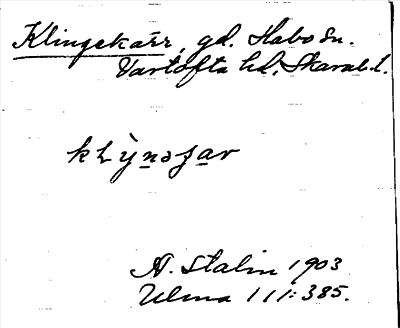 Klingekärr, gd. Habo sn.
Vartofta hd, Skarab.l.
klỳnəʃar
A. Stalin 1903
Ulma 111:385.